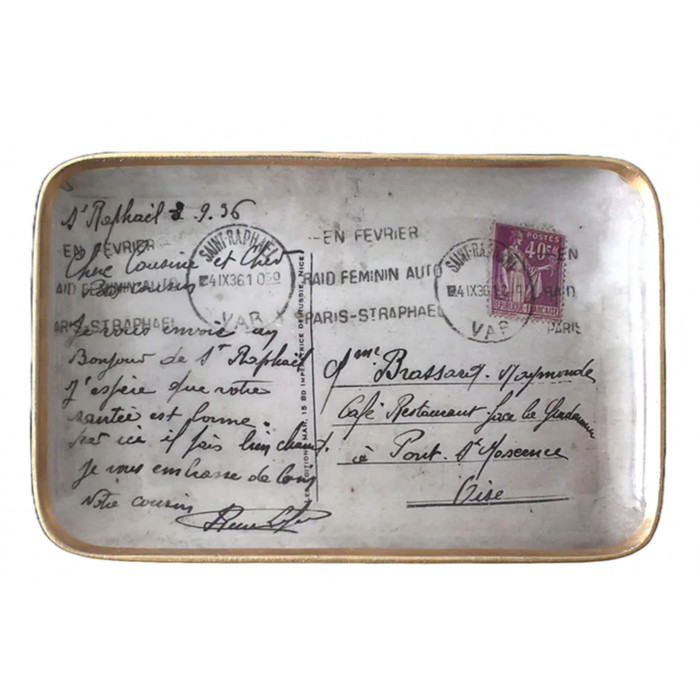 St Raphaël 2.9.36
Chere Cousine et Cher
Cousin
Je vous envoie un
Bonjour de St Raphaël
J'espère que votre
santée est bonne.
Par ici il fais bien chaud.
Je vous embrasse de loin
Votre cousin
EN FEVRIER
RAID FEMININ AUTO
PARIS-STRAPHAEL
SAINT-RAPHAEL
4 IX 36
VAR
EN FEVRIER
RAID FEMININ AUTO
PARIS-STRAPHAEL
SAINT-RAPHAEL
4 IX 36
VAR
EN
RAID
PARIS
POSTES
40c
MAR, 15 BD IMPERATRICE DE RUSSIE, NICE
Mme Brassart Raymonde
Café Restaurant face la Gendarmerie
à Pont. Ste Maxence
Oise